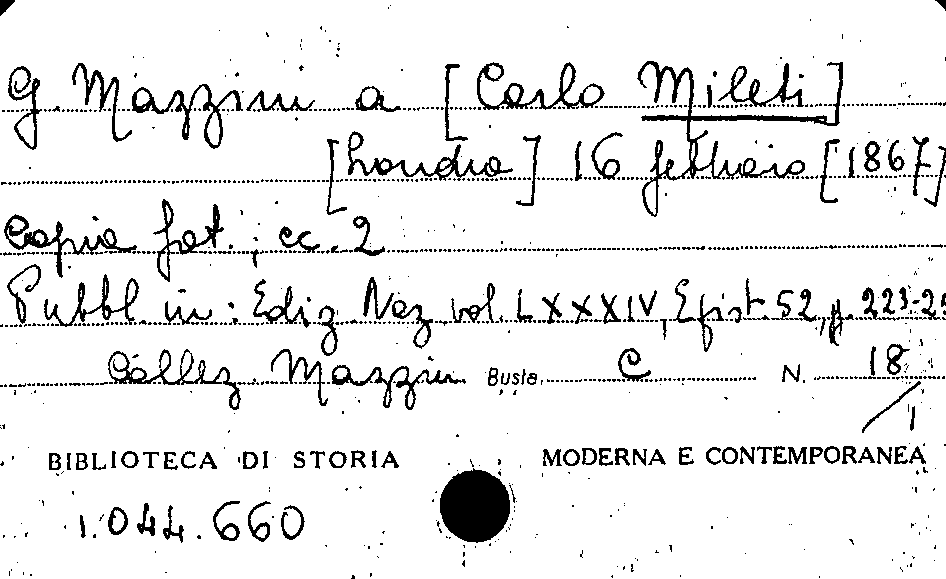 G. Mazzini a [Carlo Mileti]
[Londra] 16 febbraio [1867]
Copia fot.; cc. 2
Pubbl. in: Ediz. Naz. vol. LXXXIV, Epist. 52, p. 223-2
Collez. Mazzini Busta C N. 18/1
BIBLIOTECA DI STORIA MODERNA E CONTEMPORANEA
1.044.660